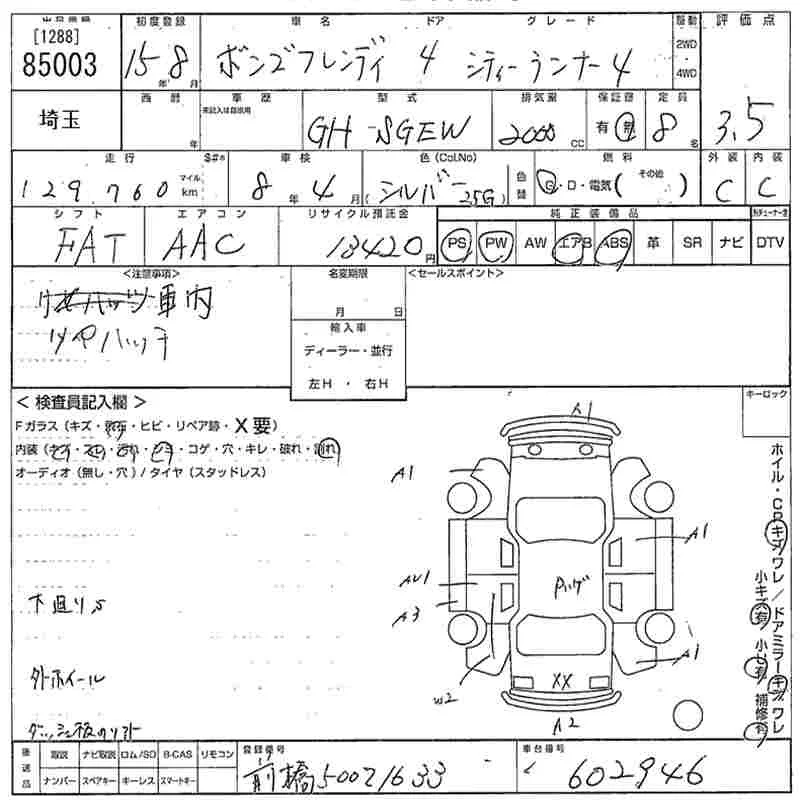 出品番号 初度登録 車名 ドア グレード 駆動 評価点
[1288]
85003 15年 8月 ボンゴフレンディ 4 シティーランナー4 2WD・4WD 3.5
埼玉 西暦 年 車歴 未記入は自家用 型式 GH-SGEW 排気量 2000 CC 保証書 有・無 定員 8名
走行 129,760 マイル km S#* 車検 8年 4月 色(Col.No) (シルバー 25G) 色替 燃料 G・D・電気( その他 ) 外装 C 内装 C
シフト FAT エアコン AAC リサイクル預託金 13420円 純正装備品 PS PW AW エアB ABS 革 SR ナビ DTV
<注意事項> 名変期限 <セールスポイント>
車内
月 日
リヤハッチ
輸入車
ディーラー・並行
左H・右H
キーロック
<検査員記入欄>
Fガラス(キズ・飛石・ヒビ・リペア跡・X要)
内装(キズ・スレ・汚れ・シミ・コゲ・穴・キレ・破れ・割れ)
オーディオ(無し・穴)/タイヤ(スタッドレス)
A1
A1
A1
AU1
A3
Pハゲ
下廻りS
A1
W2
XX
A2
外ホイール
ダッシュ板のリフト
ホイル・CPキズ/ワレ/ドアミラーキズ/ワレ
小キズ有 小凹有 補修有
後送品 取説 ナビ取説 ロム/SD B-CAS リモコン
ナンバー スペアキー キーレス スマートキー
登録番号 前橋500そ1633
車台番号 602946